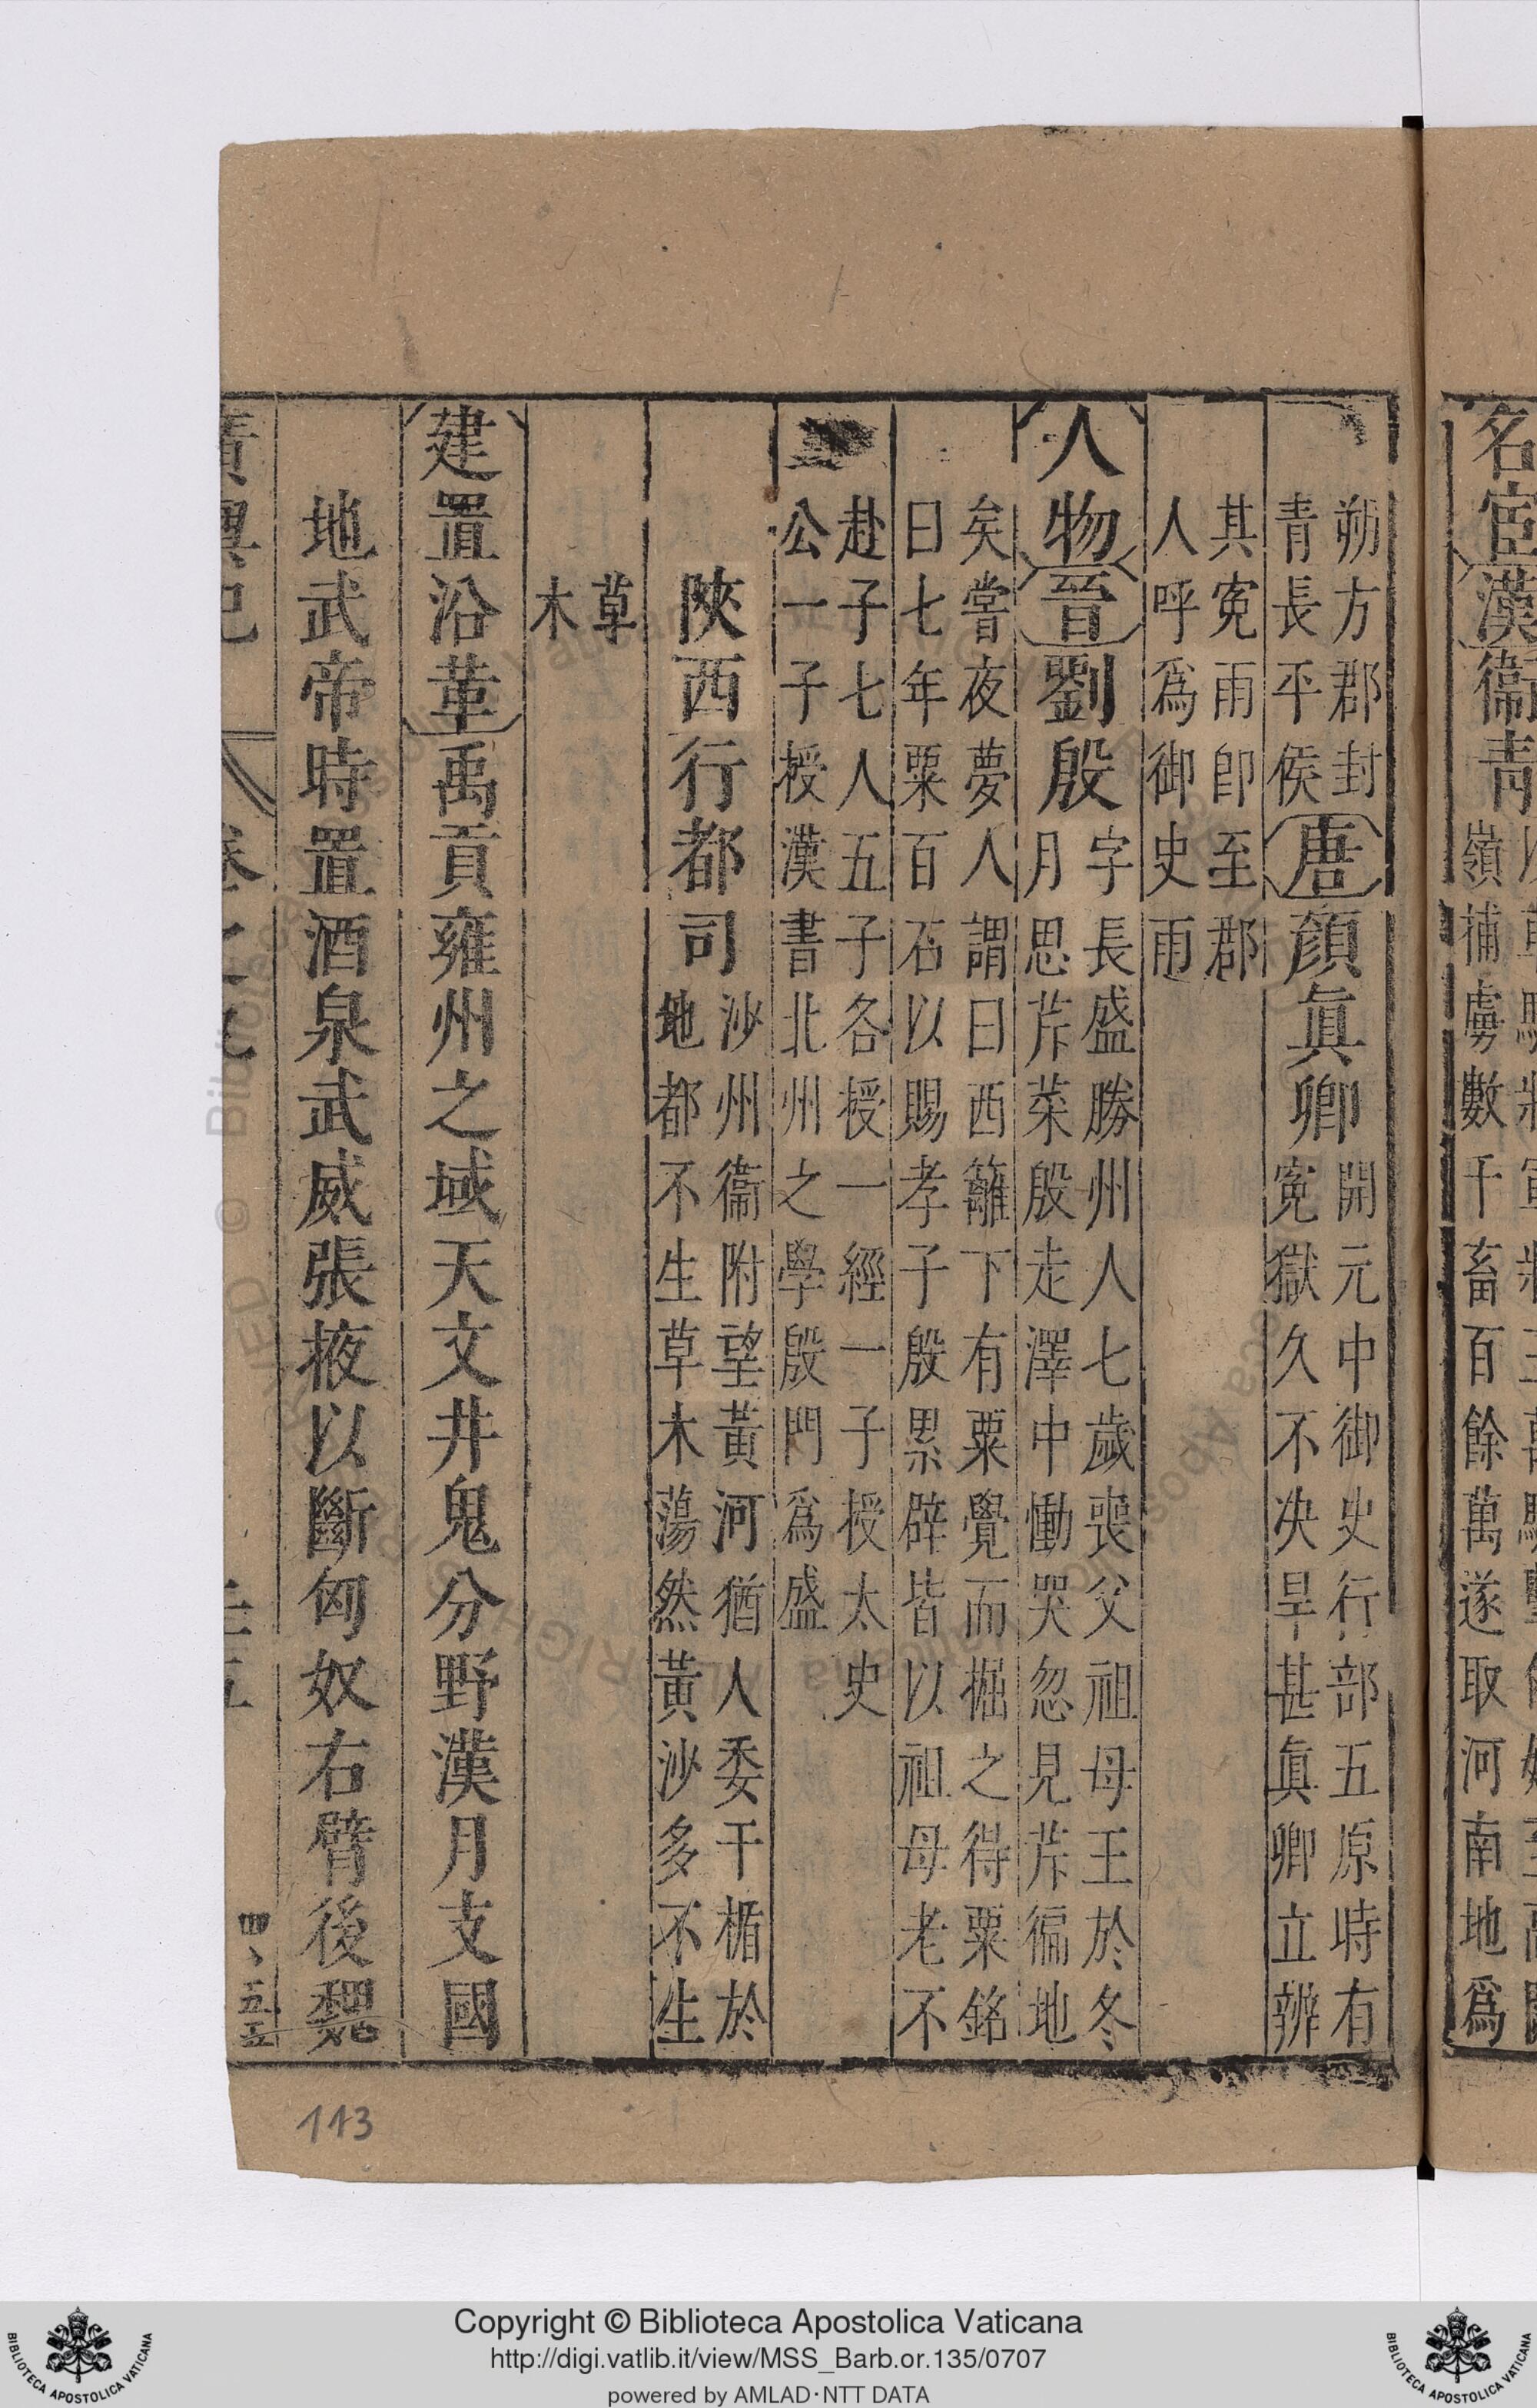 名宦漢衞青
嶺捕虜數千畜百餘萬遂取河南地爲
朔方郡封
青長平侯
唐顏眞卿
開元中御史行部五原時有
寃獄久不决旱甚眞卿立辨
其寃雨卽至郡
人呼爲御史雨
人物晉劉殷
字長盛勝州人七歲喪父祖母王於冬
月思芹菜殷走澤中慟哭忽見芹徧地
矣嘗夜夢人謂曰西籬下有粟覺而掘之得粟銘
曰七年粟百石以賜孝子殷累辟皆以祖母老不
赴子七人五子各授一經一子授太史
公一子授漢書北州之學殷門爲盛
陜西行都司
沙州衞附望黃河猶人委干楯於
地都不生草木蕩然黃沙多不生
草
木
建置沿革禹貢雍州之域天文井鬼分野漢月支國
地武帝時置酒泉武威張掖以斷匈奴右臂後魏
四、五五
113
Copyright © Biblioteca Apostolica Vaticana
http://digi.vatlib.it/view/MSS_Barb.or.135/0707
powered by AMLAD·NTT DATA
BIBLIOTECA APOSTOLICA VATICANA
BIBLIOTECA APOSTOLICA VATICANA